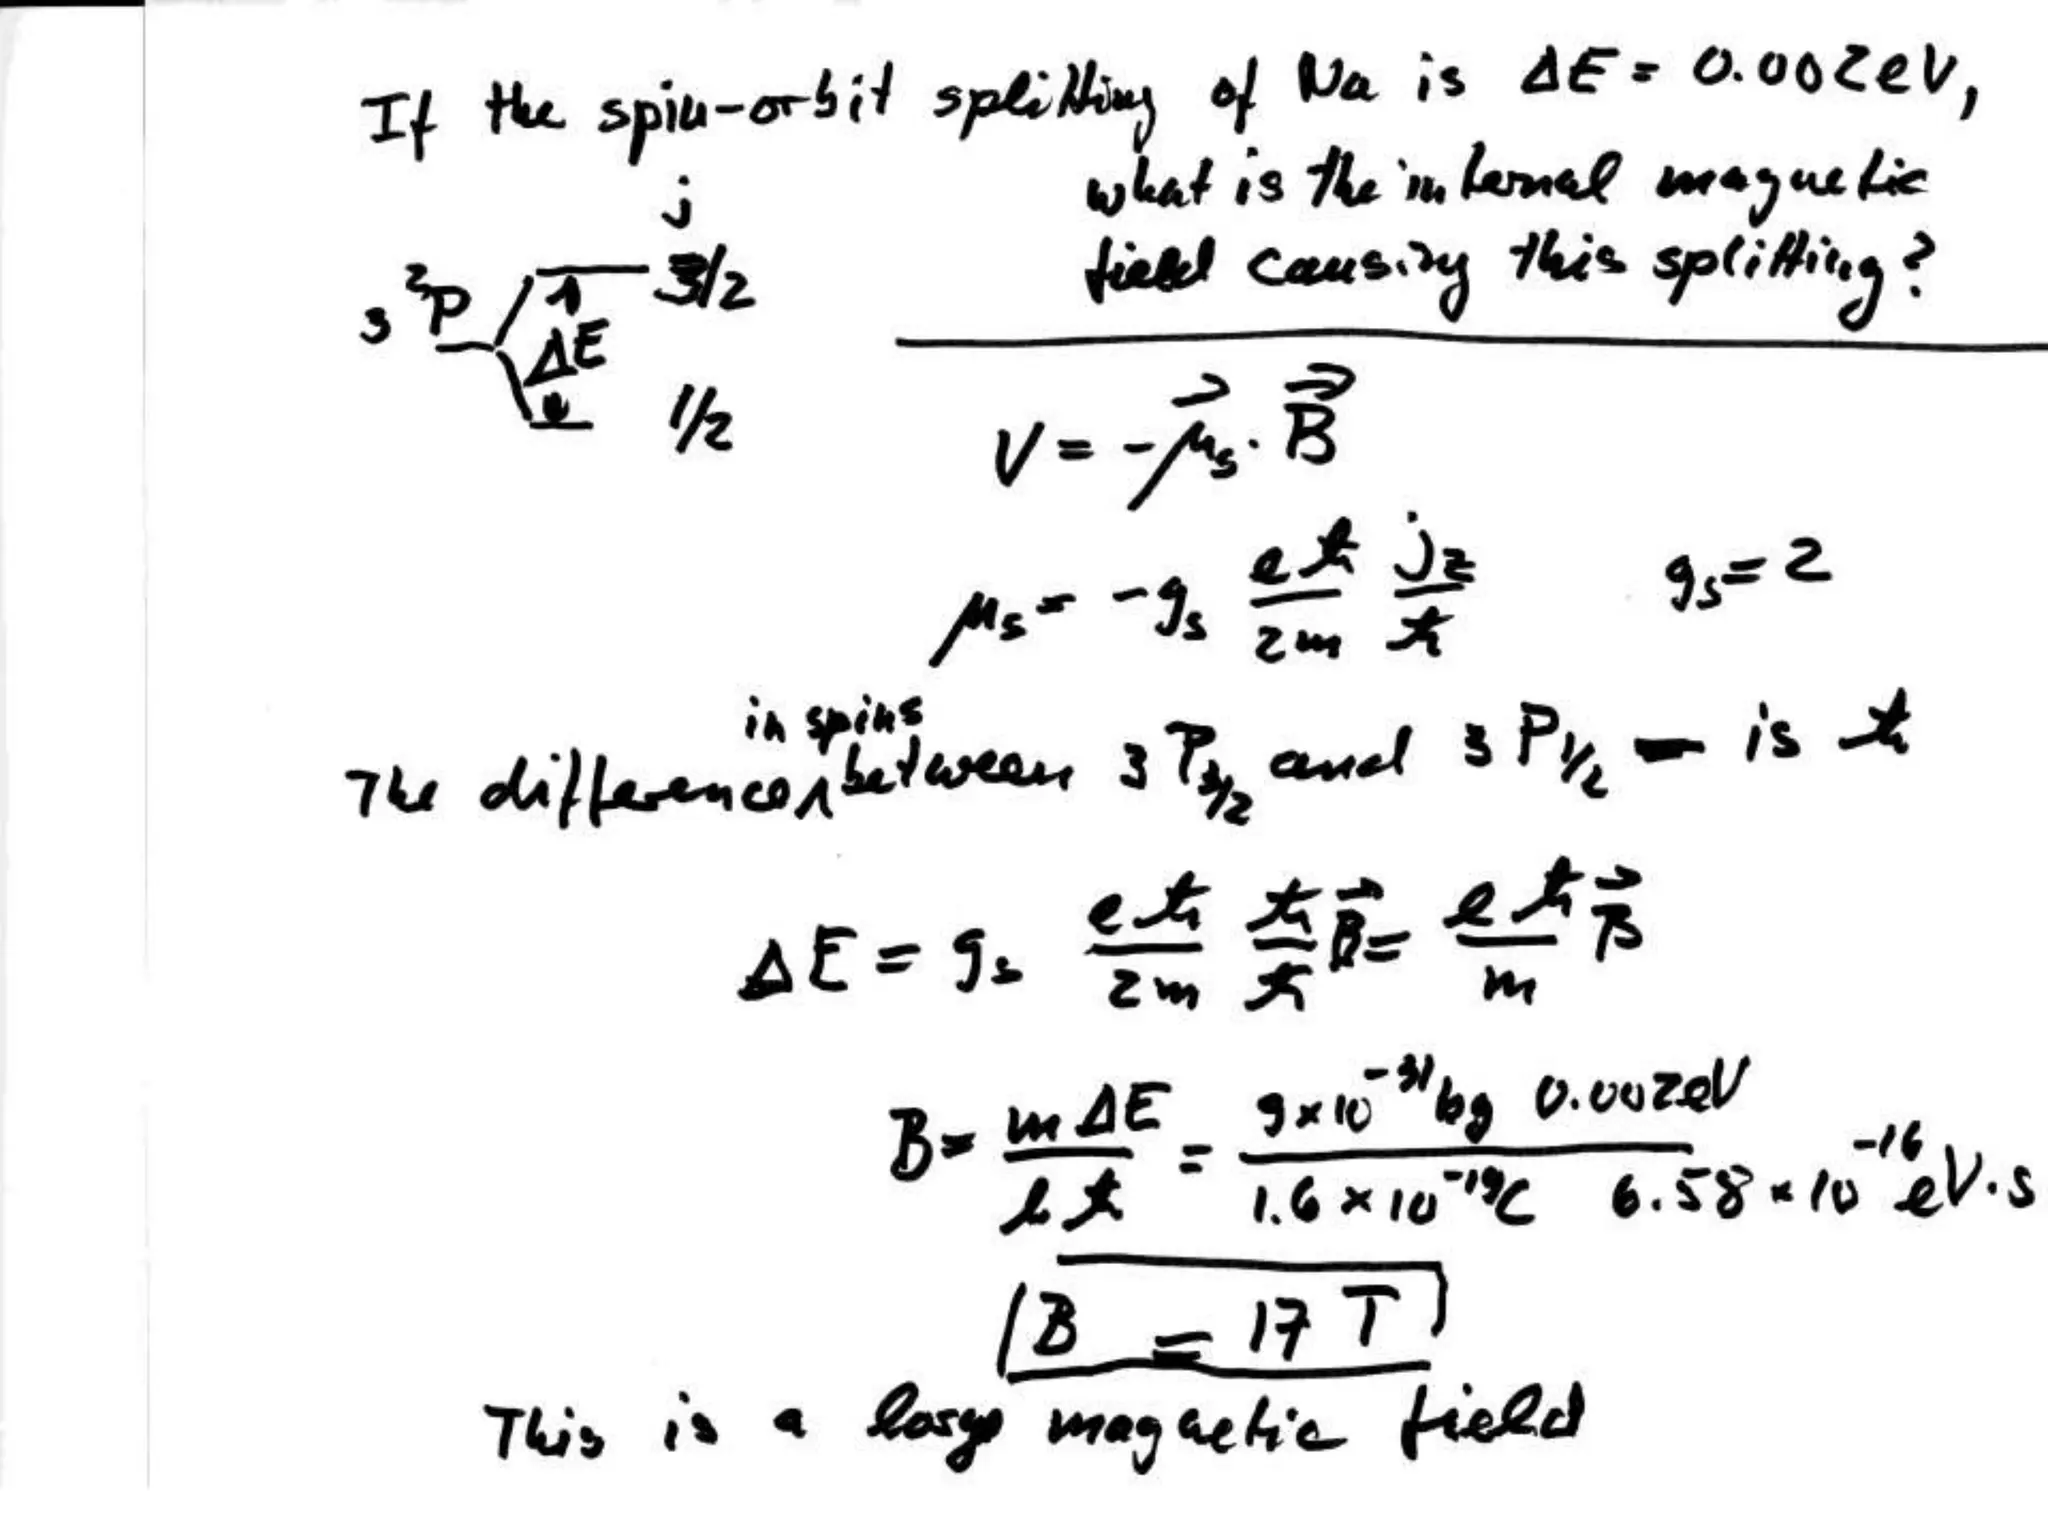 If the spin-orbit splitting of Na is ΔE = 0.002eV,
what is the internal magnetic
field causing this splitting?
j
3 ²P 3/2
ΔE
1/2
V = -μ⃗s · B⃗
μs = -gs eħ/2m jz/ħ gs = 2
in spins
The difference ∧ between 3 P3/2 and 3 P1/2 – is ħ
ΔE = gs eħ/2m ħ/ħ B⃗ = eħ/m B⃗
B = mΔE/eħ = 9×10⁻³¹kg 0.002eV / 1.6×10⁻¹⁹C 6.58×10⁻¹⁶eV·s
B = 17 T
This is a large magnetic field